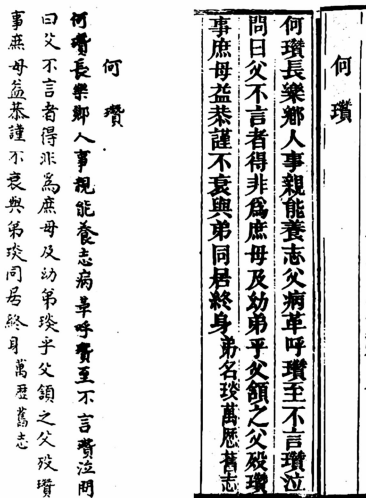 何瓚
何瓚長樂鄉人事親能養志父病革呼瓚至不言瓚泣
問曰父不言者得非爲庶母及幼弟乎父頷之父殁瓚
事庶母益恭謹不衰與弟同居終身弟名琰萬歷舊志
何瓚
何瓚長樂鄉人事親能養志病革呼瓚至不言瓚泣問
曰父不言者得非爲庶母及幼弟琰乎父頷之父殁瓚
事庶母益恭謹不衰與弟琰同居終身萬歷舊志